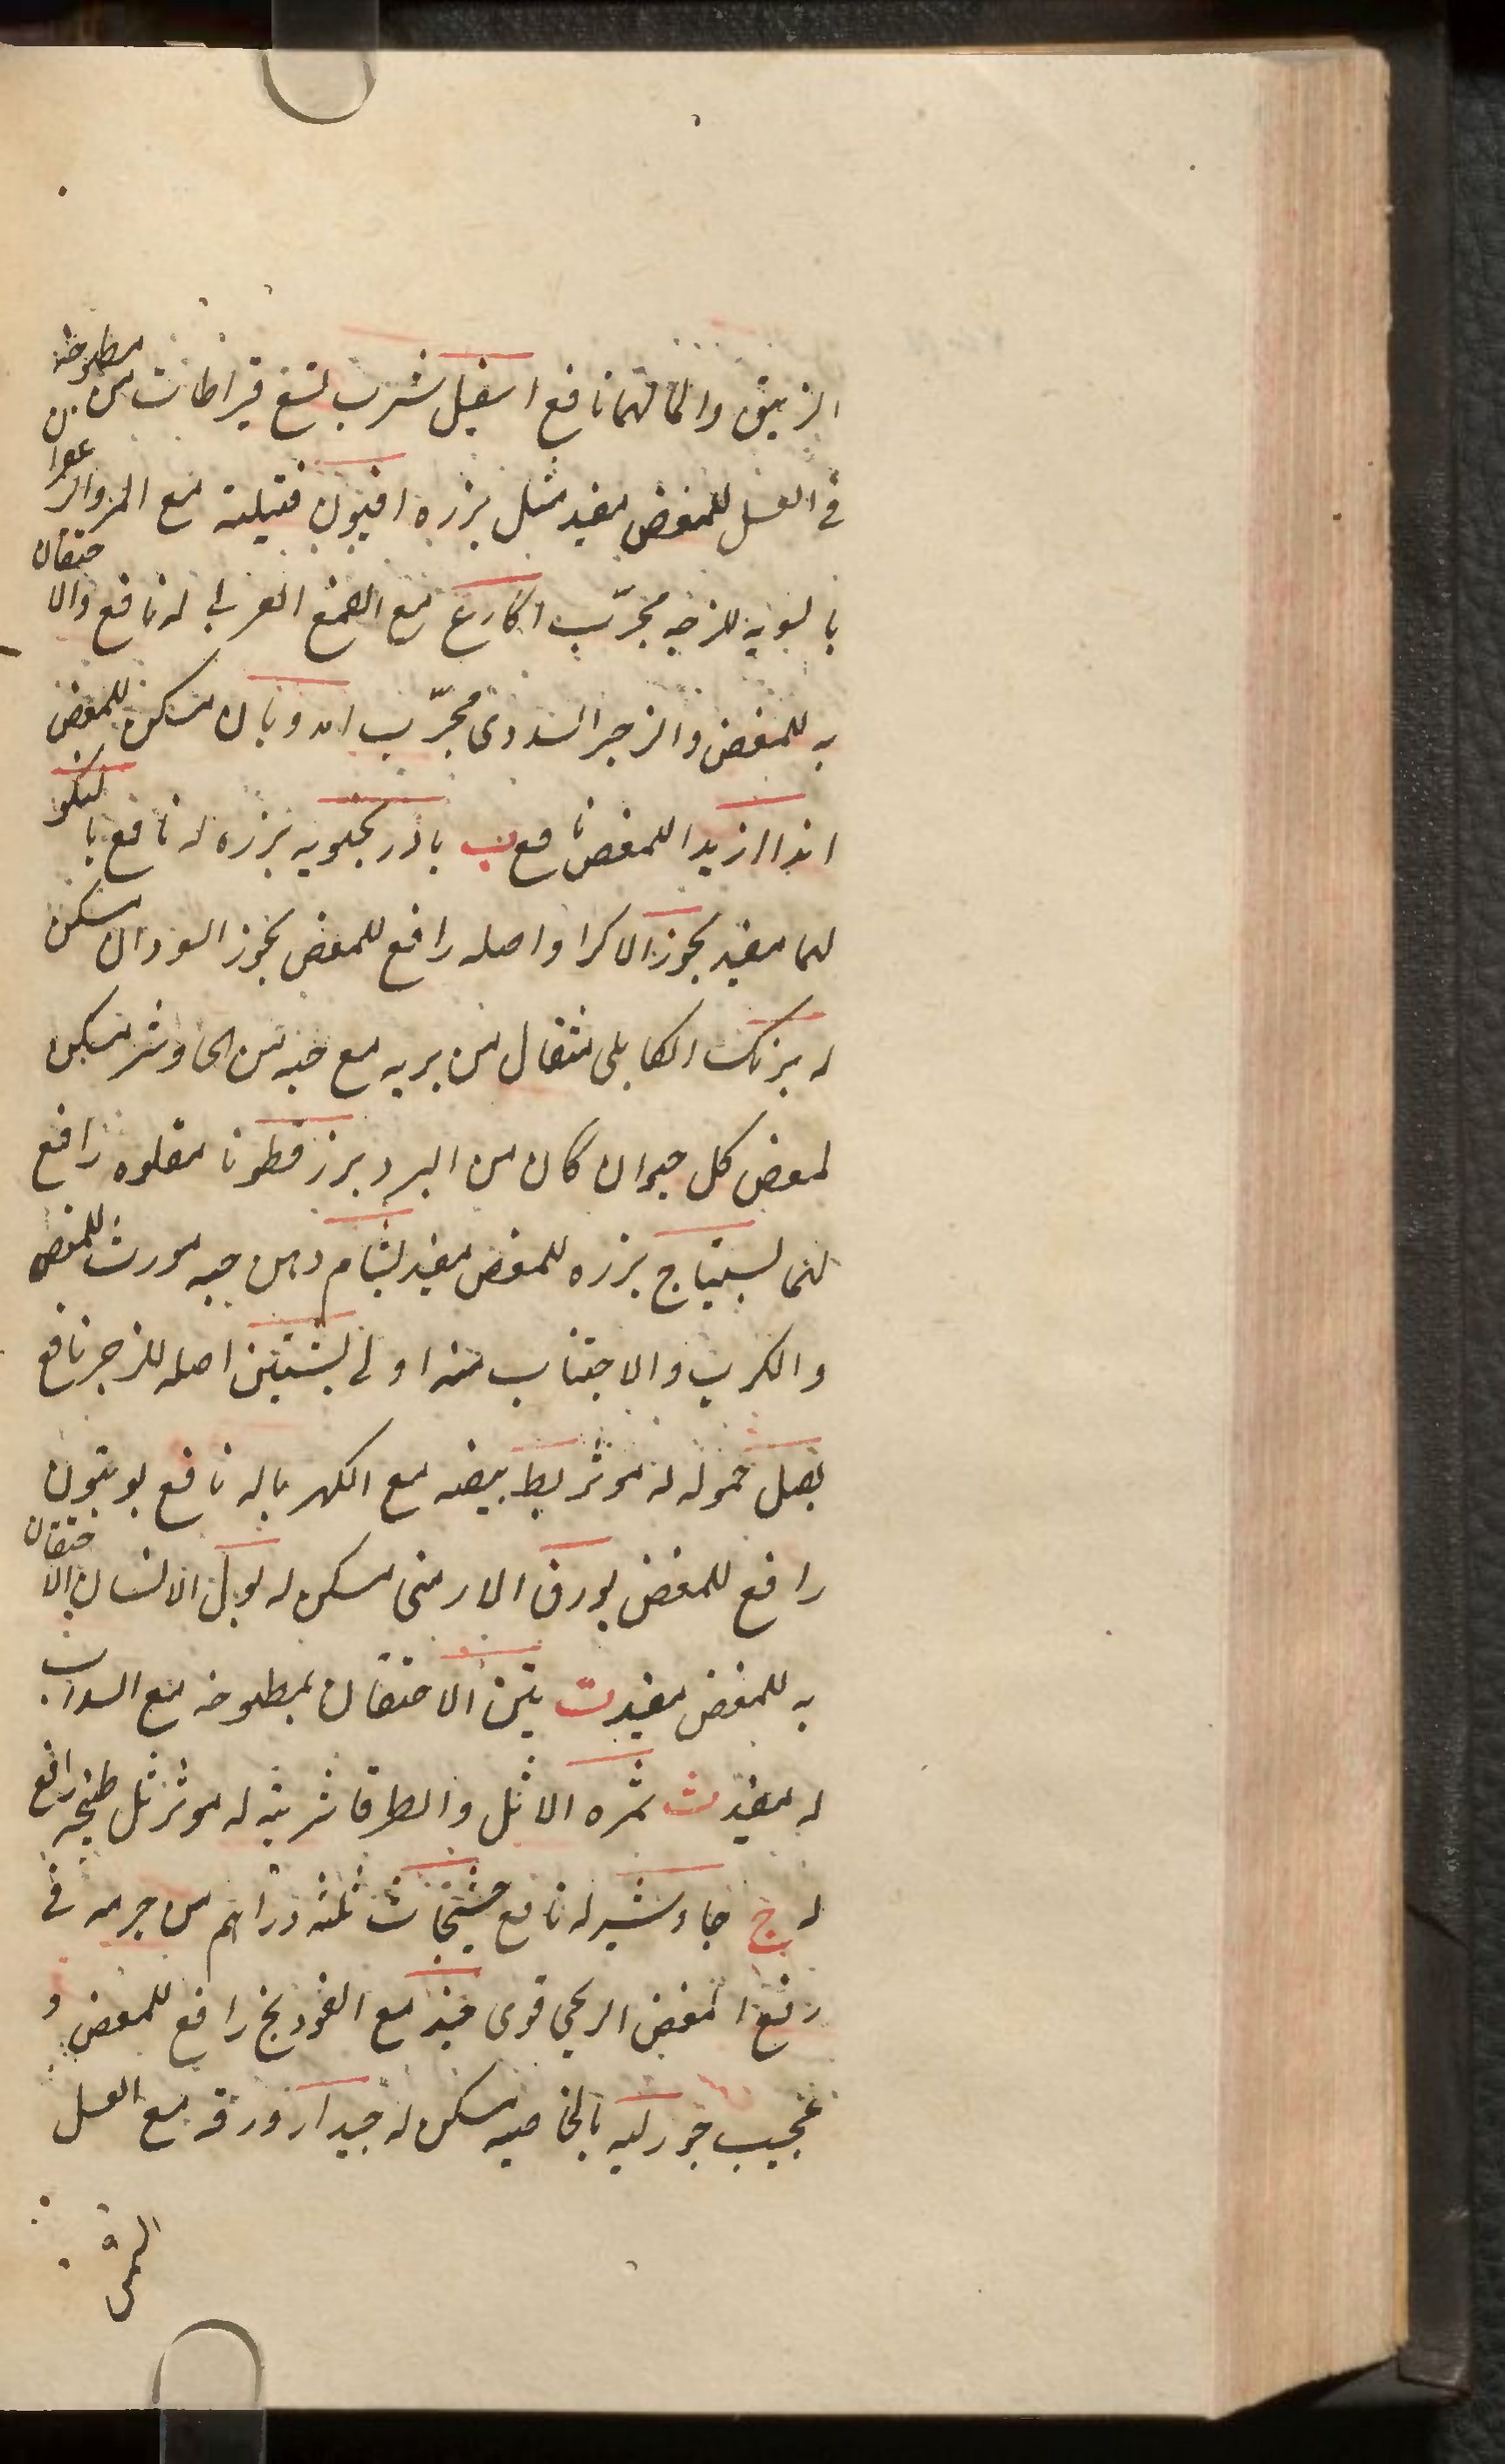 الزيتق والمالهما نافع اسفيل شرب تسع قيراطات من مطبوخه
في العسل للمغض مفيد مثل بزره افيون فتيلته مع المر والزعفران
بالسويه للزجير مجرّب اكارع مع الصمغ العربي له نافع والاحتقان
به للمغض والزجير السددى مجرّب اندوبان مسكن للمغض
اندااريدا للمغض نافع ب بادرنجبويه بزره له نافع بالنكو
لهما مفيد بخور الاكراد اصله رافع للمغض بخور السودان مسكن
له برنك الكابلى مثقال من بربه مع حبه من الجاوشير مسكن
لمغض كل حيوان كان من البرد بزر قطونا مقلوه رافع
لهما بسيتاج بزره للمغض مفيد بشام دهن حبه مورث للمغض
والكرب والاجتناب منه اولى بشتين اصله للزجير نافع
بصل حموله له موثر بط بيضه مع الكهربا له نافع بويتون
رافع للمغض بورق الارمنى مسكن له بول الانسان الاحتقان
به للمغض مفيد ت تين الاحتقان بمطبوخه مع السداب
له مفيد ث ثمره الاثل والطرفا شربته له موثر ثل طبيخه رافع
له ج جاوشير له نافع جشنجاث ثلثه دراهم من جرمه في
رفع المغض الريحي قوى جند مع الفودنج رافع للمغض و
عجيب جورليه بالخاصيه مسكن له جيدار ورقه مع العسل